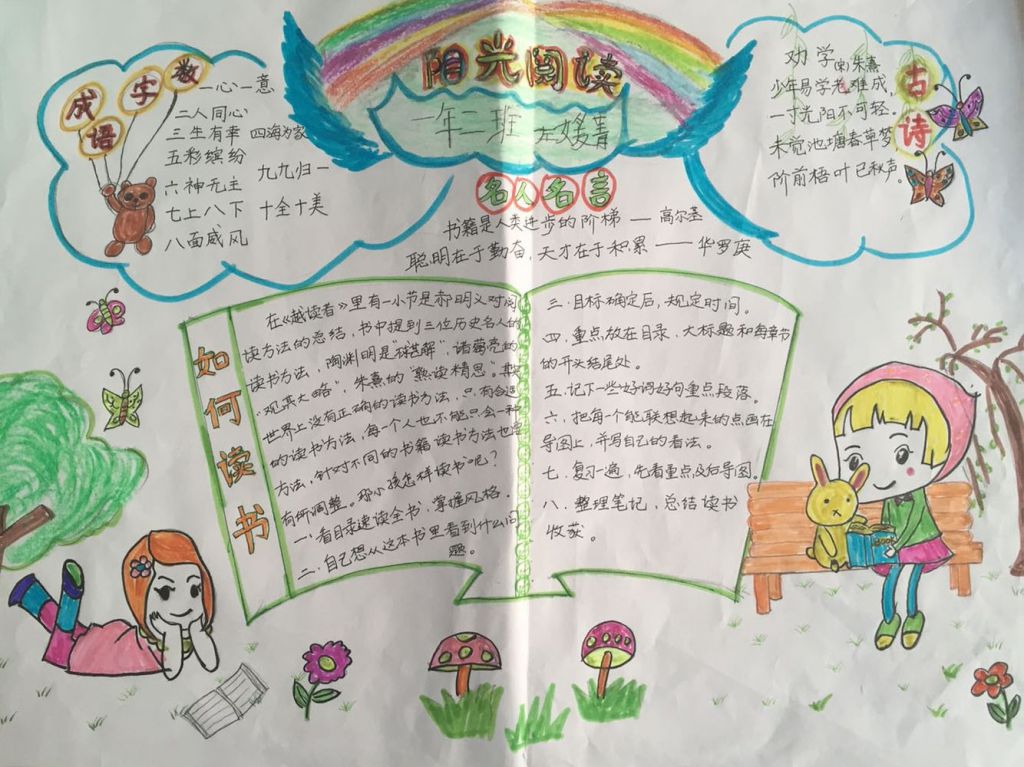 阳光阅读
一年二班 左媛青
数字成语
一心一意
二人同心
三生有幸 四海为家
五彩缤纷
六神无主 九九归一
七上八下 十全十美
八面威风
名人名言
书籍是人类进步的阶梯 — 高尔基
聪明在于勤奋,天才在于积累 —— 华罗庚
古诗
劝学(宋)朱熹
少年易学老难成,
一寸光阳不可轻。
未觉池塘春草梦
阶前梧叶已秋声。
如何读书
在《越读者》里有一小节是郝明义对时间
读方法的总结,书中提到三位历史名人的
读书方法,陶渊明是"不求甚解",诸葛亮的
"观其大略",朱熹的"熟读精思。其实
世界上没有正确的读书方法,只有合适
的读书方法,每一个人也不能只会一种
方法,针对不同的书籍读书方法也会
有所调整。那小孩怎样读书呢?
一.看目录速读全书,掌握风格。
二.自己想从这本书里看到什么问
题。
三.目标确定后,规定时间。
四.重点放在目录、大标题和每章节
的开头结尾处。
五.记下一些好词好句重点段落。
六.把每个能联想起来的点画在
导图上,并写自己的看法。
七.复习一遍,先看重点及后导图。
八.整理笔记,总结读书
收获。
Book